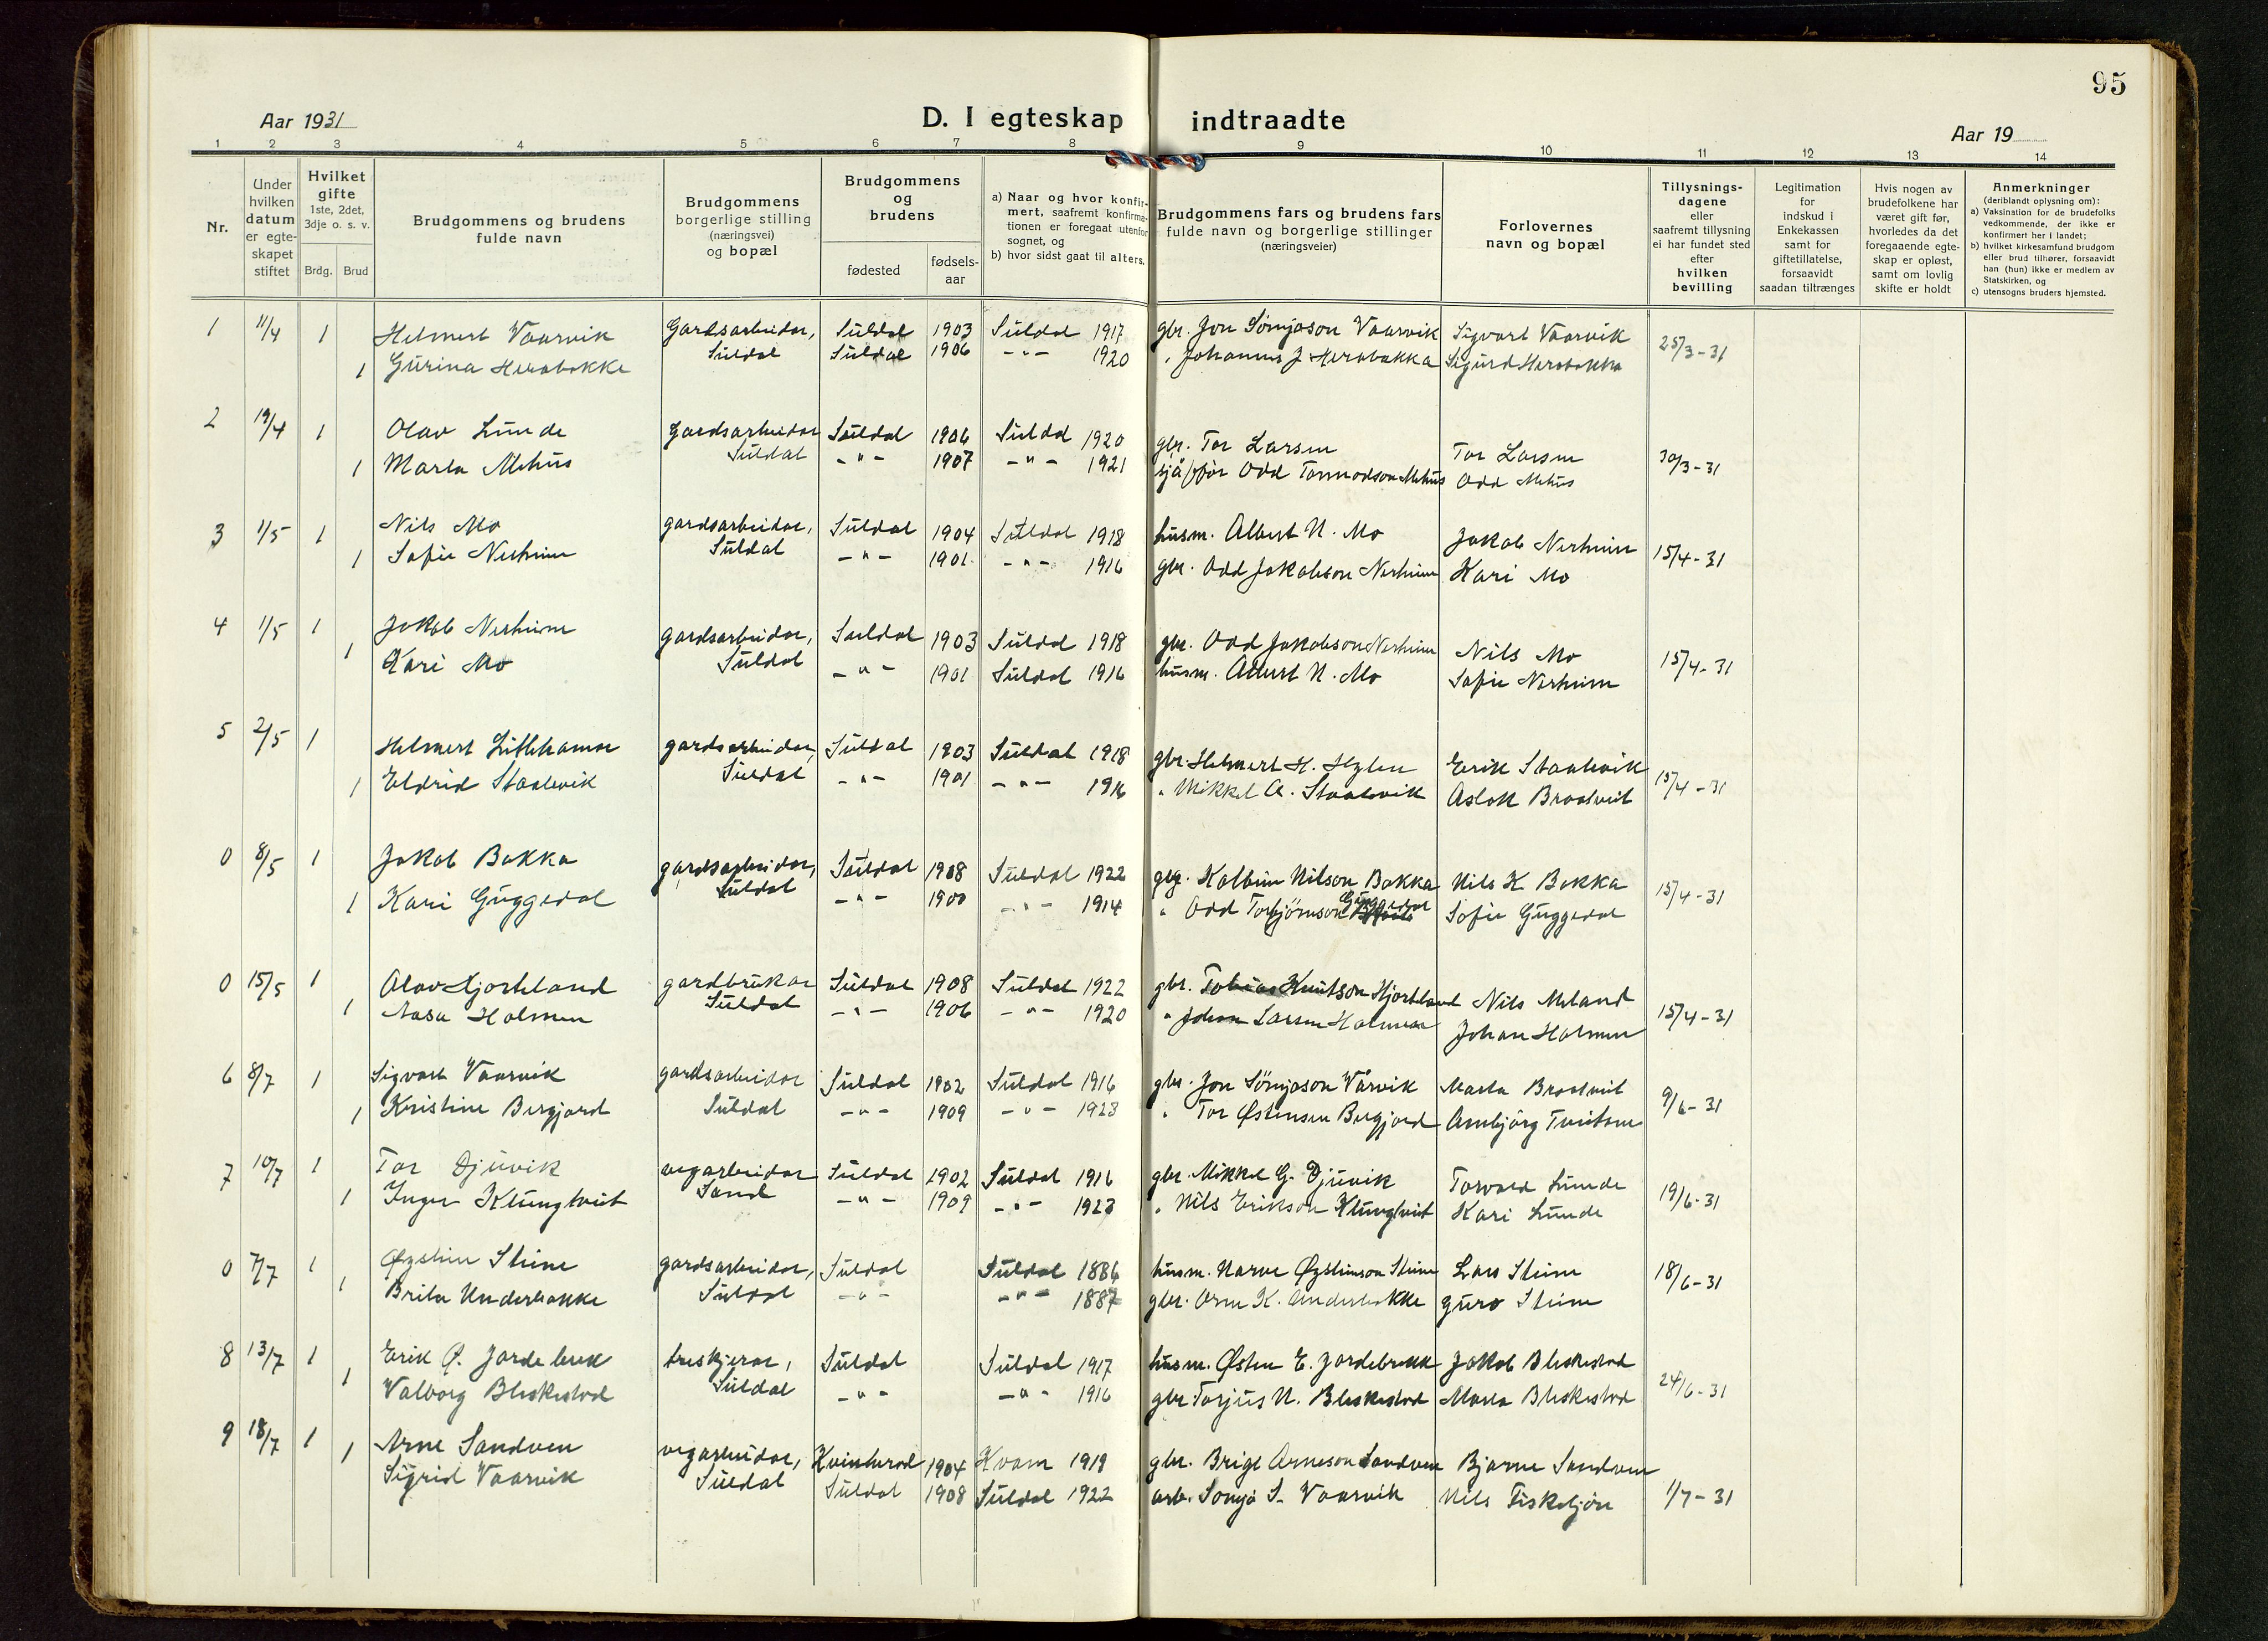 95
Aar 1931
D. I egteskap indtraadte
Aar 19
1 2 3 4 5 6 7 8 9 10 11 12 13 14
Nr.
Under hvilken datum er egteskapet stiftet
Hvilket gifte 1ste, 2det, 3dje o. s. v.
Brdg. Brud
Brudgommens og brudens fulde navn
Brudgommens borgerlige stilling (næringsvei) og bopæl
Brudgommens og brudens
fødested
fødsels-aar
a) Naar og hvor konfirmert, saafremt konfirmationen er foregaat utenfor sognet, og
b) hvor sidst gaat til alters.
Brudgommens fars og brudens fars fulde navn og borgerlige stillinger (næringsveier)
Forlovernes navn og bopæl
Tillysningsdagene eller saafremt tillysning ei har fundet sted efter hvilken bevilling
Legitimation for indskud i Enkekassen samt for giftetillatelse, forsaavidt saadan tiltrænges
Hvis nogen av brudefolkene har været gift før, hvorledes da det foregaaende egteskap er opløst, samt om lovlig skifte er holdt
Anmerkninger (deriblandt oplysning om):
a) Vaksination for de brudefolks vedkommende, der ikke er konfirmert her i landet;
b) hvilket kirkesamfund brudgom eller brud tilhører, forsaavidt han (hun) ikke er medlem av Statskirken, og
c) utensogns bruders hjemsted.
1 11/4 1 Helmert Vaarvik Gardsarbeidar, Suldal 1903 Suldal 1917 gbr. Jon Sømjason Vaarvik Sigvart Vaarvik 25/3-31
1 Gurina Herabakke Suldal Suldal 1906 -"- 1920 " Johannes J Herabakka Sigurd Herabakka
2 19/4 1 Olav Lunde Gardsarbeidar Suldal 1906 Suldal 1920 gbr. Tor Larsen Tor Larsen 30/3-31
1 Marta Mehus Suldal -"- 1907 -"- 1921 sjåfør Odd Tormodson Mehus Odd Mehus
3 1/5 1 Nils Mo gardsarbeidar, Suldal 1904 Suldal 1918 husm. Albert N. Mo Jakob Nerheim 15/4-31
1 Sofie Nerheim Suldal -"- 1901 -"- 1916 gbr. Odd Jakobson Nerheim Kari Mo
4 1/5 1 Jakob Nerheim gardsarbeidar, Suldal 1903 Suldal 1918 gbr. Odd Jakobson Nerheim Nils Mo 15/4-31
1 Kari Mo Suldal -"- 1901 Suldal 1916 husm. Albert N. Mo Sofie Nerheim
5 2/5 1 Helmert Litlehamar gardsarbeidar, Suldal 1903 Suldal 1918 gbr. Helmert H. Erik Staalevik 15/4-31
1 Eldrid Staalevik Suldal -"- 1901 -"- 1916 " Mikkel A. Staalevik Aslak Braatveit
0 8/5 1 Jakob Bakka gardsarbeidar, Suldal 1908 Suldal 1922 gbr. Kolbein Nilson Bakka Nils K Bakka 15/4-31
1 Kari Guggedal Suldal -"- 1900 -"- 1914 " Odd Torbjørnson Guggedal Sofie Guggedal
0 15/5 1 Olav Hjorteland gardbrukar Suldal 1908 Suldal 1922 gbr. Tobias Knutson Hjorteland Nils Meland 15/4-31
1 Aasa Holmen Suldal -"- 1906 -"- 1920 " Johan Larsen Holmen Johan Holmen
6 8/7 1 Sigvart Vaarvik gardsarbeidar Suldal 1902 Suldal 1916 gbr. Jon Sömjason Vårvik Marta Braatveit 9/6-31
1 Kristine Bergjord Suldal -"- 1909 -"- 1923 " Tor Østensen Bergjord Arnbjörg Tveitane
7 10/7 1 Tor Djuvik vegarbeidar Suldal 1902 Suldal 1916 gbr. Mikkel G. Djuvik Torvald Lunde 19/6-31
1 Inger Klungtveit Sand -"- 1909 -"- 1923 " Nils Erikson Klungtveit Kari Lunde
0 7/7 1 Øystein Steine gardsarbeidar, Suldal Suldal 1886 husm. Narve Øysteinson Steine Lars Steine 18/6-31
1 Brita Underbakke Suldal -"- -"- 1887 gbr. Arne K. Underbakke Guro Steine
8 13/7 1 Erik Ø. Jordebrek treskjerar, Suldal Suldal 1917 husm. Østen E. Jordebrekk Jakob Bleskestad 24/6-31
1 Valborg Bleskestad Suldal -"- -"- 1916 gbr Torjus N. Bleskestad Marta Bleskestad
9 18/7 1 Arne Sandven vegarbeidar, Kvinherad 1904 Kvam 1919 gbr. Brigt Arneson Sandven Bjarne Sandven 1/7-31
1 Sigrid Vaarvik Suldal Suldal 1908 Suldal 1922 arb. Sømja S. Vaarvik Nils Fisketjön